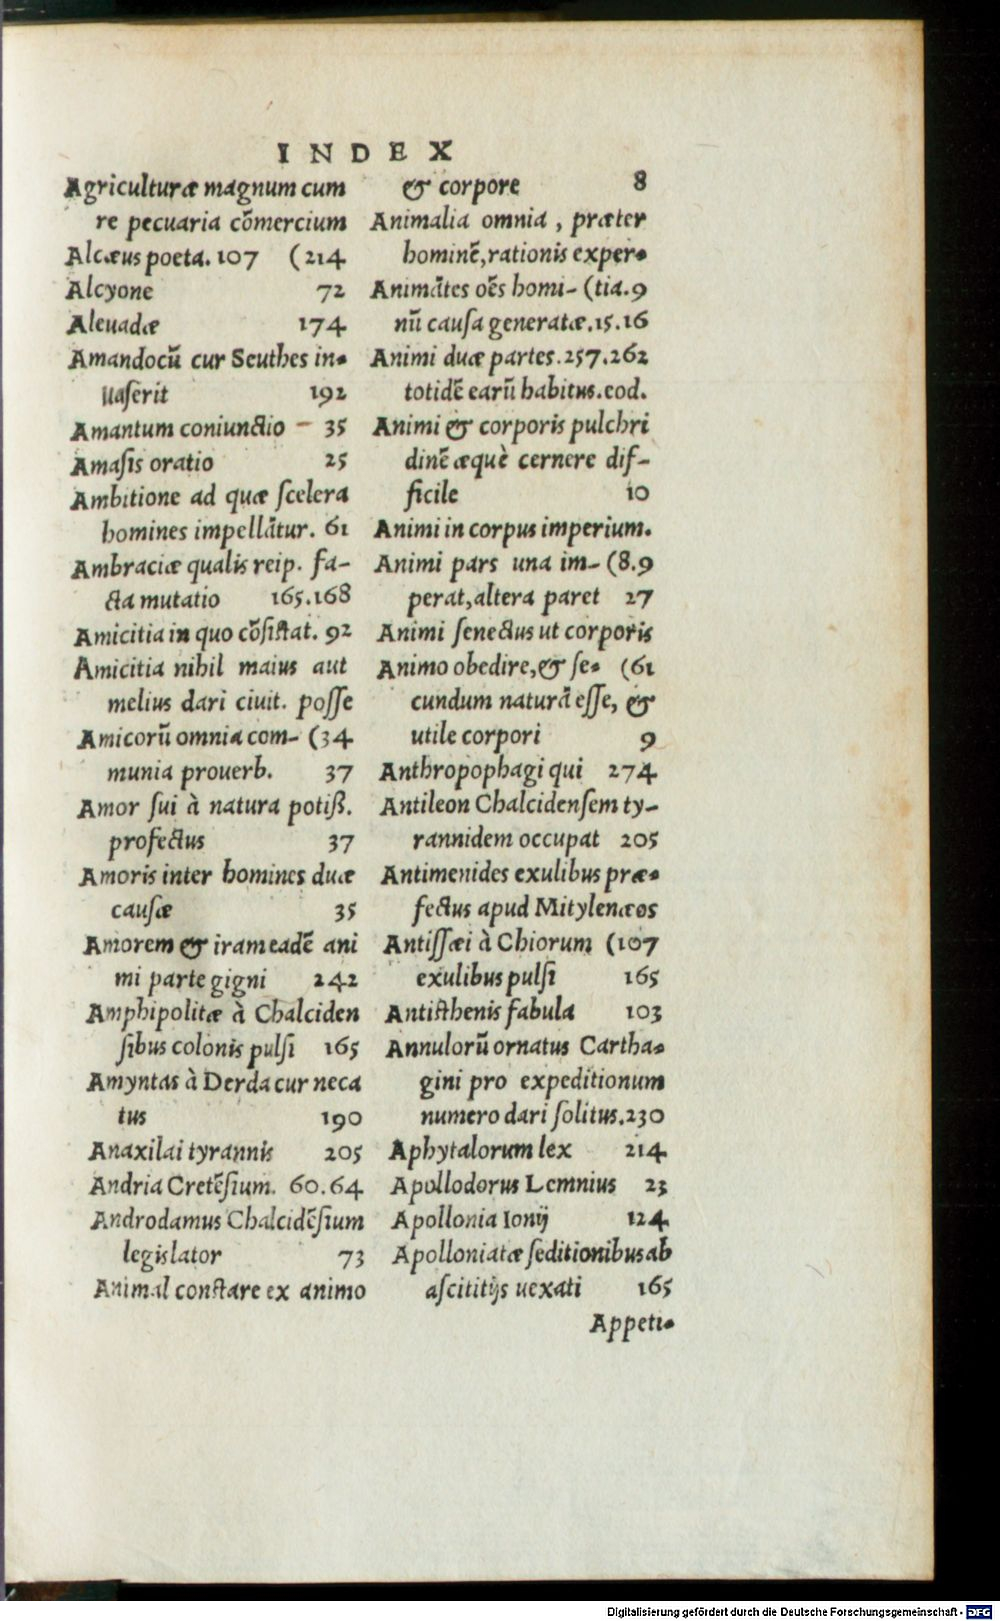 INDEX
Agriculturæ magnum cum
re pecuaria cōmercium
Alcæus poeta. 107 (214
Alcyone 72
Aleuadæ 174
Amandocū cur Seuthes in-
uaſerit 192
Amantum coniunctio 35
Amaſis oratio 25
Ambitione ad quæ ſcelera
homines impellātur. 61
Ambraciæ qualis reip. fa-
cta mutatio 165.168
Amicitia in quo cōſiſtat. 92
Amicitia nihil maius aut
melius dari ciuit. poſſe
Amicorū omnia com- (34
munia prouerb. 37
Amor ſui à natura potiß.
profectus 37
Amoris inter homines duæ
cauſæ 35
Amorem & iram eadē ani
mi parte gigni 242
Amphipolitæ à Chalciden
ſibus colonis pulſi 165
Amyntas à Derda cur neca
tus 190
Anaxilai tyrannis 205
Andria Cretēſium. 60.64
Androdamus Chalcidēſium
legislator 73
Animal conſtare ex animo
& corpore 8
Animalia omnia, præter
hominē, rationis exper-
Animātes oēs homi- (tia.9
nū cauſa generatæ.15.16
Animi duæ partes.257.262
totidē earū habitus.eod.
Animi & corporis pulchri
dinē æquè cernere dif-
ficile 10
Animi in corpus imperium.
Animi pars una im- (8.9
perat, altera paret 27
Animi ſenectus ut corporis
Animo obedire, & ſe- (61
cundum naturā eſſe, &
utile corpori 9
Anthropophagi qui 274
Antileon Chalcidenſem ty-
rannidem occupat 205
Antimenides exulibus præ-
fectus apud Mitylenæos
Antiſſæi à Chiorum (107
exulibus pulſi 165
Antiſthenis fabula 103
Annulorū ornatus Cartha-
gini pro expeditionum
numero dari ſolitus.230
Aphytalorum lex 214
Apollodorus Lemnius 23
Apollonia Ionij 124
Apolloniatæ ſeditionibus ab
aſcititijs uexati 165
Appeti-
Digitalisierung gefördert durch die Deutsche Forschungsgemeinschaft - DFG